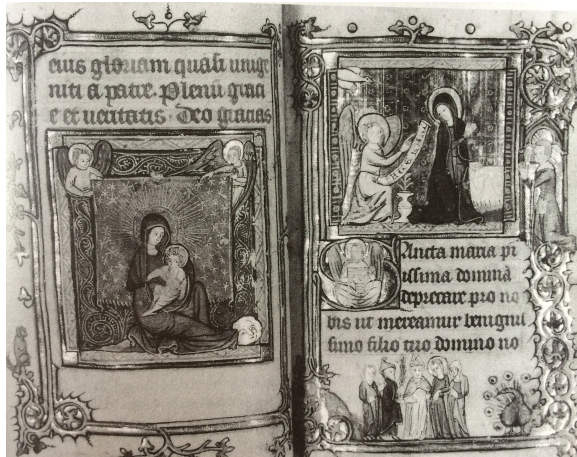 eius gloriam quasi unige
niti a patre. Plenū graci
e et ueritatis. Deo gracias
Sancta maria pi
issima dominā
deprecare pro no
bis ut mereamur benigni
simo filio tuo domino no